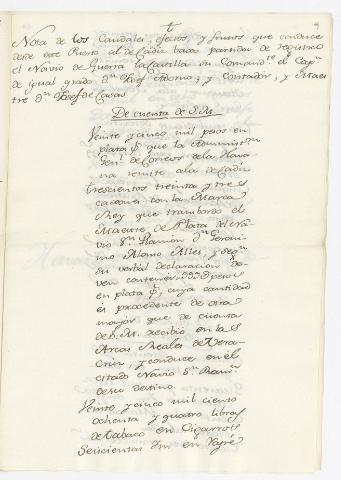 Nota de los Caudales, efectos, y frutos que conduce
desde este Puerto al de Cadiz baxo partidas de registro
el Navio de Guerra la Castilla su Comand.te el Cap.n
de igual grado d.n Josef Adorno; y Contador, y Maes
tre d.n Josef de Casas
De cuenta de S.M.
Veinte y cinco mil pesos en
plata f.te que la Administrac.n
Gen.l de Correos de la Hava-
na remite a la de Cadiz
trescientos treinta y tres
caxones con la Marca
Rey que trambordó el
Maestre de Plata del Na-
vio S.n Ramon d.n Geroni-
mo Alonso Alles, y seg.n
su verbal declaracion de-
ven contener pesos
en plata f.te, cuya cantidad
es procedente de otra
mayor que de cuenta
de S. M. recibió en las
Arcas Reales de Vera-
cruz y conduce en el
citado Navio S.n Ram.n
de su destino.
Veinte y cinco mil ciento
ochenta y quatro libras
de tabaco en Cigarros
Seiscientas en